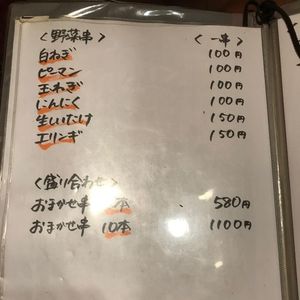 〈野菜串〉 〈一串〉
白ねぎ 100円
ピーマン 100円
玉ねぎ 100円
にんにく 100円
生しいたけ 150円
エリンギ 150円
〈盛り合わせ〉
おまかせ串 本 580円
おまかせ串 10本 1100円